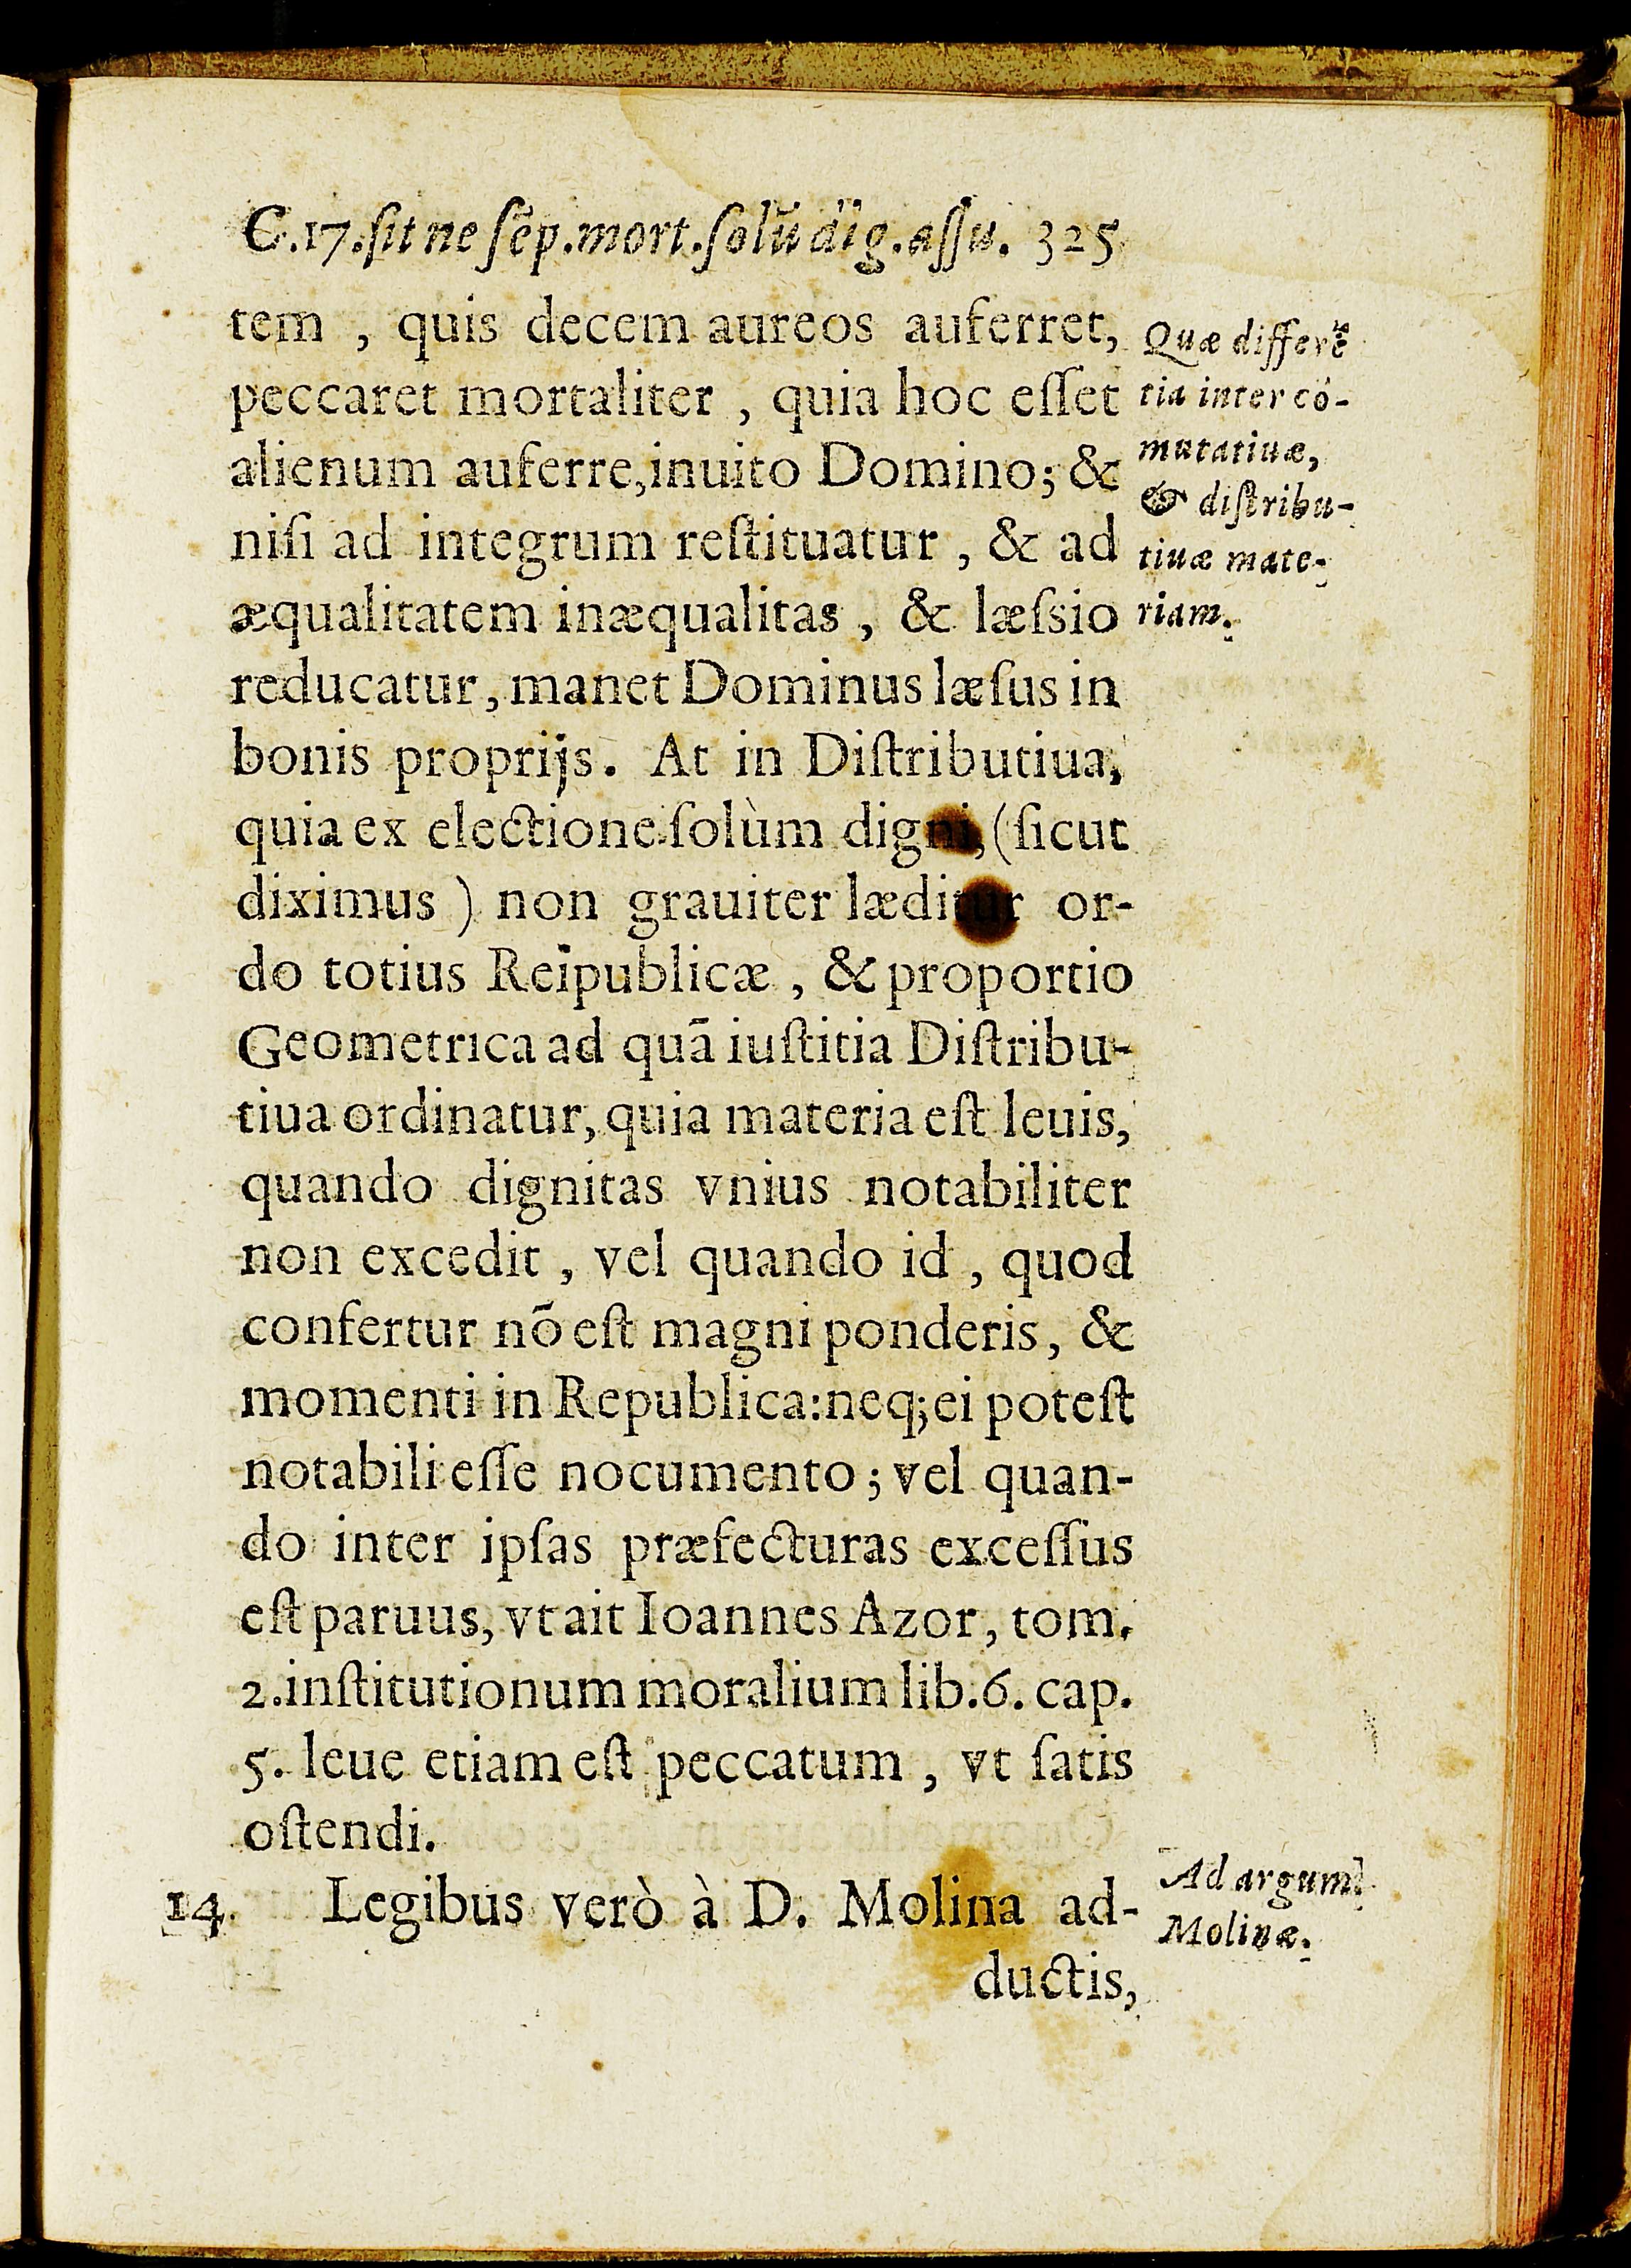 C.17.ſit ne ſẽp.mort.ſolũ dig.aſſu. 325
tem , quis decem aureos auferret,
peccaret mortaliter , quia hoc eſſet
alienum auferre,inuito Domino; &
niſi ad integrum reſtituatur , & ad
æqualitatem inæqualitas , & læſsio
reducatur, manet Dominus læſus in
bonis proprijs. At in Diſtributiua,
quia ex electione ſolùm digni, (ſicut
diximus ) non grauiter læditur or-
do totius Reipublicæ , & proportio
Geometrica ad quā iuſtitia Diſtribu-
tiua ordinatur, quia materia eſt leuis,
quando dignitas vnius notabiliter
non excedit , vel quando id , quod
confertur nō eſt magni ponderis, &
momenti in Republica:neq; ei poteſt
notabili eſſe nocumento ; vel quan-
do inter ipſas præfecturas exceſſus
eſt paruus, vt ait Ioannes Azor, tom.
2.inſtitutionum moralium lib.6. cap.
5. leue etiam eſt peccatum , vt ſatis
oſtendi.
14. Legibus verò à D. Molina ad-
ductis,
Quæ differẽ
tia inter cõ-
mutatiuæ,
& diſtribu-
tiuæ mate-
riam.
Ad argum.
Molinæ.